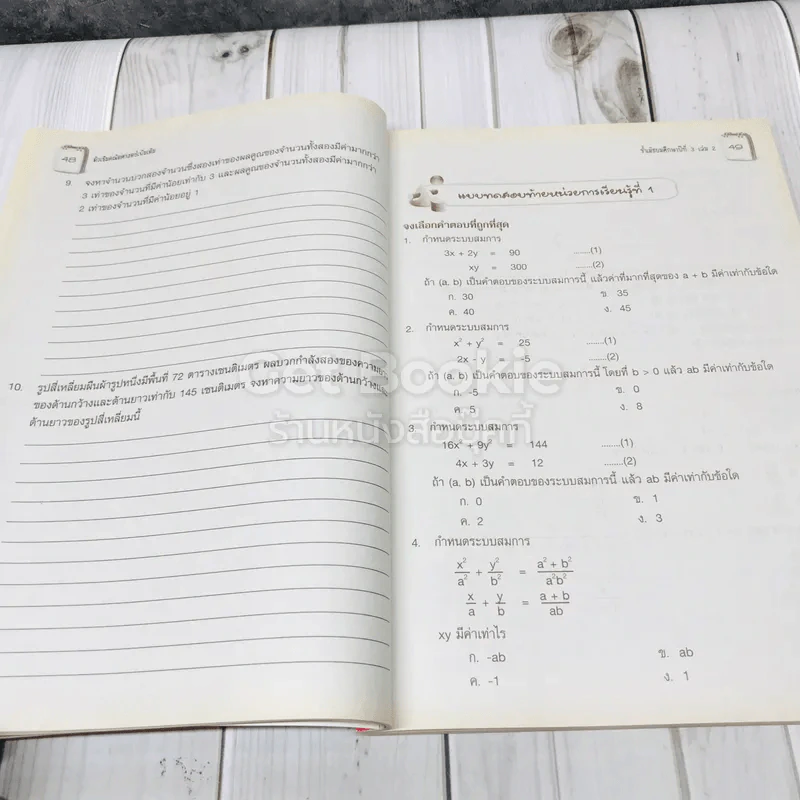 48
ติวเข้มคณิตศาสตร์เพิ่มเติม
9. จงหาจำนวนบวกสองจำนวนซึ่งสองเท่าของผลคูณของจำนวนทั้งสองมีค่ามากกว่า
3 เท่าของจำนวนที่มีค่าน้อยเท่ากับ 3 และผลคูณของจำนวนทั้งสองมีค่ามากกว่า
2 เท่าของจำนวนที่มีค่าน้อยอยู่ 1
10. รูปสี่เหลี่ยมผืนผ้ารูปหนึ่งมีพื้นที่ 72 ตารางเซนติเมตร ผลบวกกำลังสองของความยาว
ของด้านกว้างและด้านยาวเท่ากับ 145 เซนติเมตร จงหาความยาวของด้านกว้างและ
ด้านยาวของรูปสี่เหลี่ยมนี้
ชั้นมัธยมศึกษาปีที่ 3 เล่ม 2
49
แบบทดสอบท้ายหน่วยการเรียนรู้ที่ 1
จงเลือกคำตอบที่ถูกที่สุด
1. กำหนดระบบสมการ
3x + 2y = 90 .......(1)
xy = 300 .......(2)
ถ้า (a, b) เป็นคำตอบของระบบสมการนี้ แล้วค่าที่มากที่สุดของ a + b มีค่าเท่ากับข้อใด
ก. 30 ข. 35
ค. 40 ง. 45
2. กำหนดระบบสมการ
x² + y² = 25 ........(1)
2x - y = -5 ........(2)
ถ้า (a, b) เป็นคำตอบของระบบสมการนี้ โดยที่ b > 0 แล้ว ab มีค่าเท่ากับข้อใด
ก. -5 ข. 0
ค. 5 ง. 8
3. กำหนดระบบสมการ
16x² + 9y² = 144 ........(1)
4x + 3y = 12 ........(2)
ถ้า (a, b) เป็นคำตอบของระบบสมการนี้ แล้ว ab มีค่าเท่ากับข้อใด
ก. 0 ข. 1
ค. 2 ง. 3
4. กำหนดระบบสมการ
x²/a² + y²/b² = (a² + b²)/a²b²
x/a + y/b = (a + b)/ab
xy มีค่าเท่าไร
ก. -ab ข. ab
ค. -1 ง. 1
Get Bookie
ร้านหนังสือบุ๊คกี้